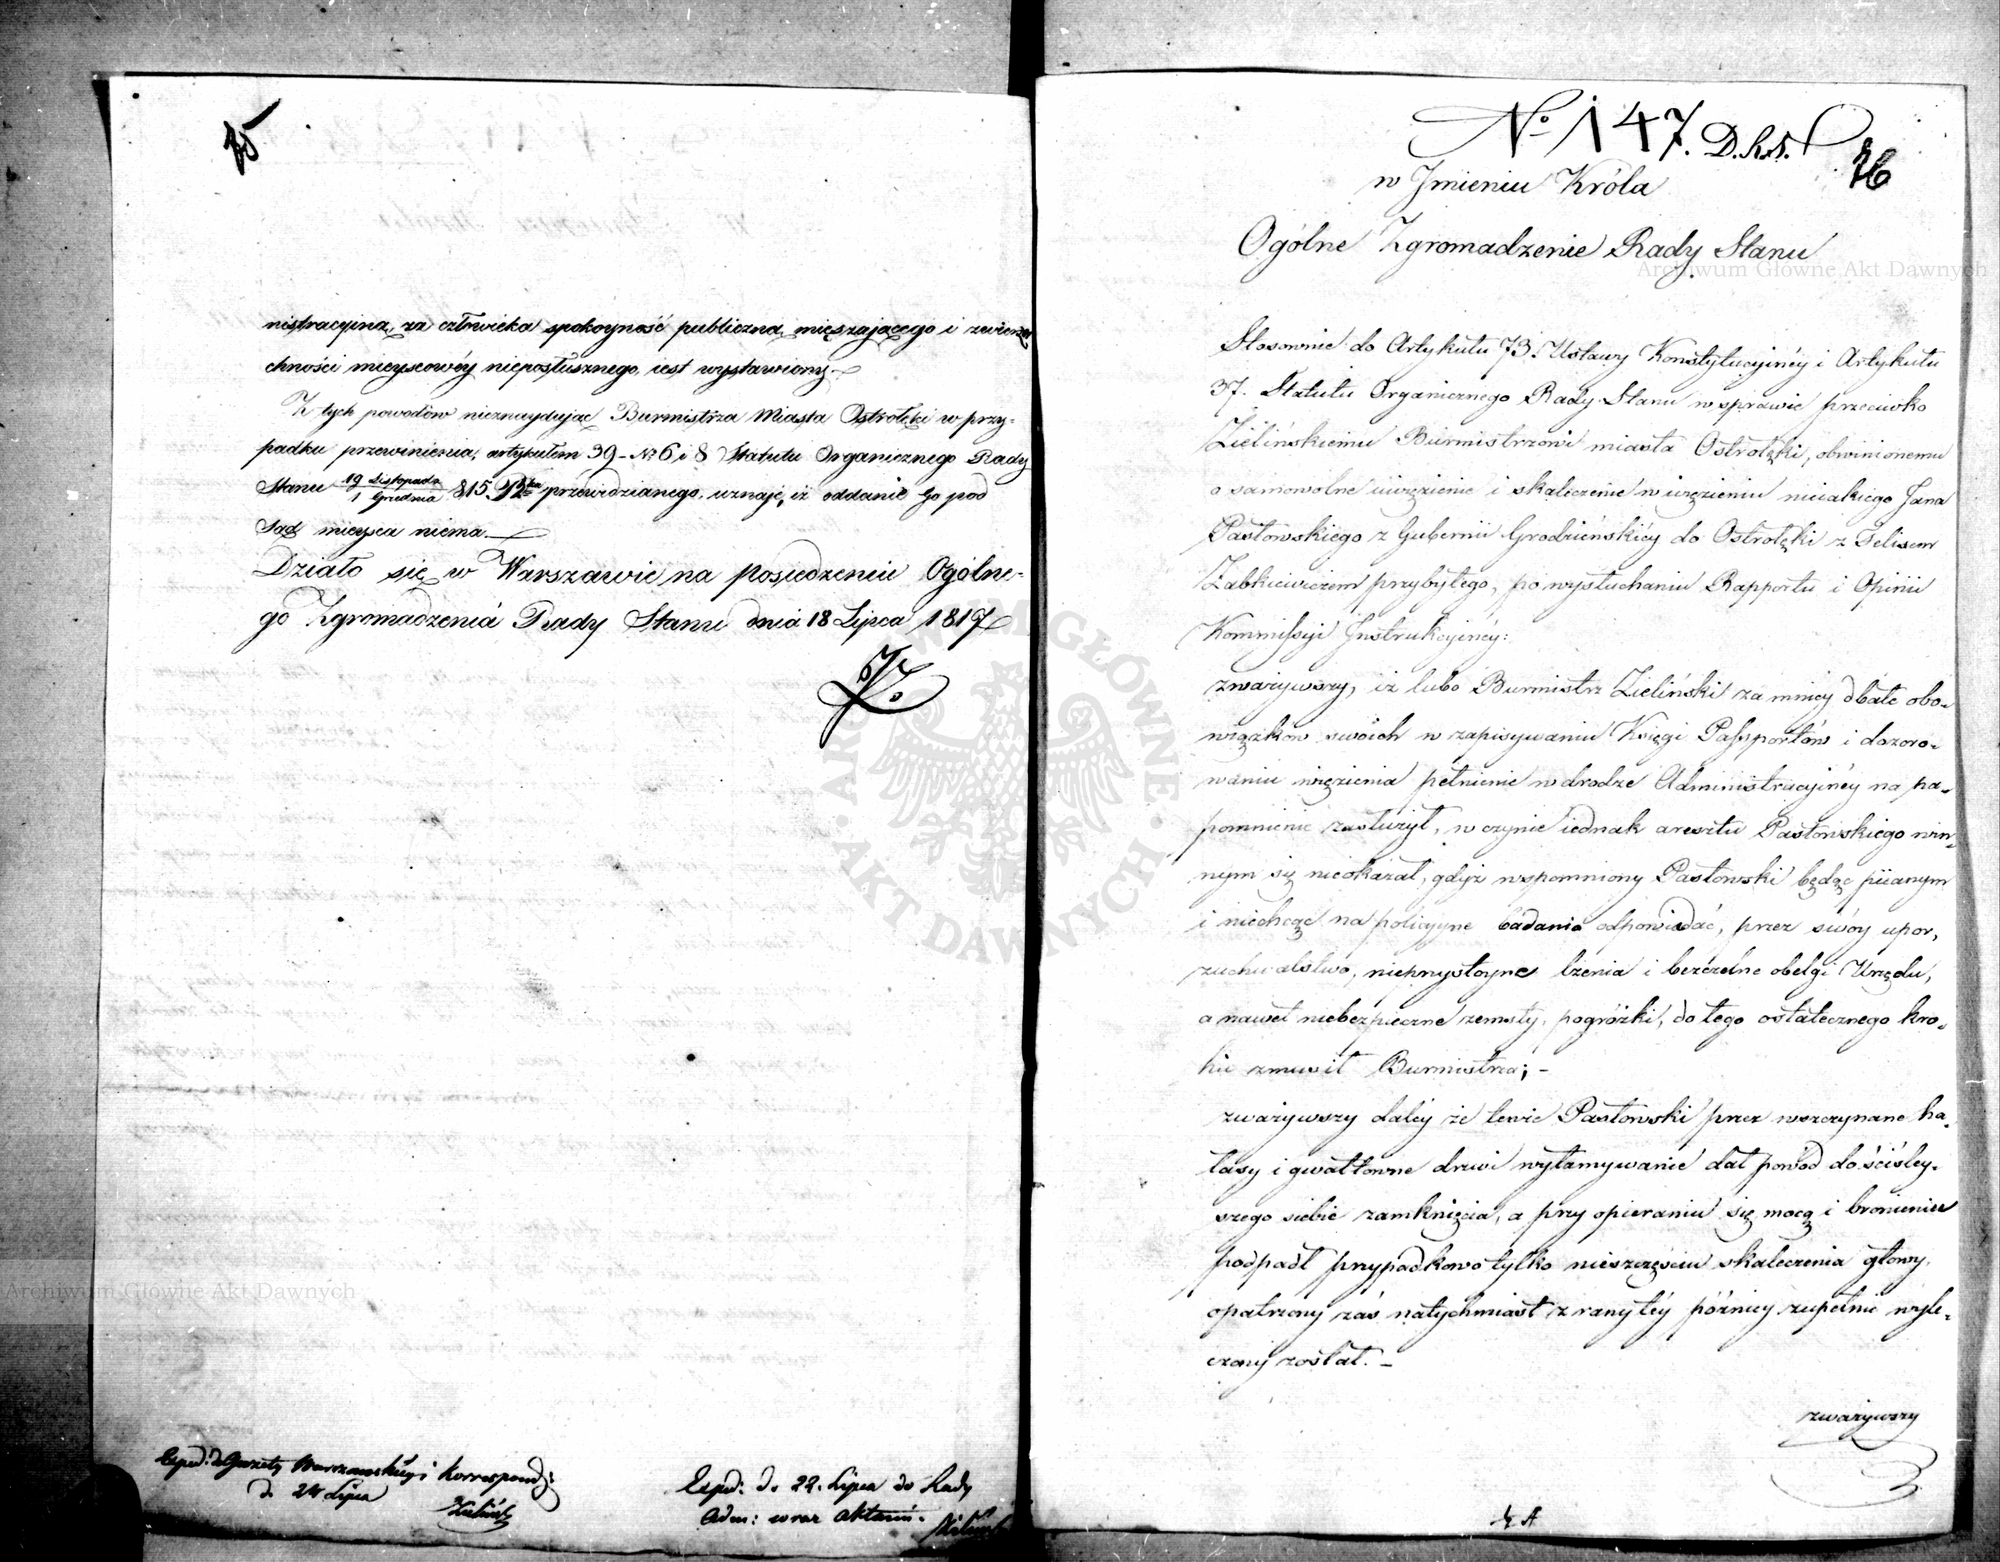 75
nistracyiną, za człowieka spokoyność publiczną mięszaiącego i zwierz-
chności mieyscowéy nieposłusznego, iest wystawiony.
Z tych powodów nieznayduiąc Burmistrza Miasta Ostrołęki w przy-
padku przewinienia, artykułem 39 - No 6 i 8 Statutu Organicznego Rady
Stanu 19 Listopada / 1 Grudnia 815 przewidzianego, uznaie, iż oddanie Go pod
Sąd mieysca niema.
Działo się w Warszawie na posiedzeniu Ogólne-
go Zgromadzenia Rady Stanu dnia 18 Lipca 1817
Exped: do Gazety Warszawskiéy i Korrespond:
d. 24 Lipca
Exped: d. 22. Lipca do Rady
Adm: wraz aktami.
No 147. D.R.S.
76
w Jmieniu Króla
Ogólne Zgromadzenie Rady Stanu
Stosownie do Artykułu 73. Ustawy Konstytucyinéy i Artykułu
37. Statutu Organicznego Rady Stanu w sprawie przeciwko
Zielińskiemu Burmistrzowi miasta Ostrołęki, obwinionemu
o samowolne uwięzienie i skaleczenie w więzieniu nieiakiego Jana
Pasłowskiego z Gubernii Grodzieńskiéy do Ostrołęki z Felixem
Żabkiewiczem przybyłego, po wysłuchaniu Rapportu i Opinii
Kommissyi Jnstrukcyinéy:
zważywszy, iż lubo Burmistrz Zieliński za mniey dbałe obo-
wiązków swoich w zapisywaniu Księgi Passportów i dozoro-
waniu więzienia pełnienie w drodze Administracyinéy na na-
pomnienie zasłużył, w czynie iednak aresztu Pasłowskiego win-
nym się nieokazał, gdyż wspomniony Pasłowski będąc piianym
i niechcąc na policyyne badania odpowiadać, przez swóy upor,
zuchwalstwo, nieprzystoyne lżenia i bezczelne obelgi Urzędu,
a nawet niebezpieczne zemsty, pogróżki, do tego ostatecznego kro-
ku zmusił Burmistrza; -
zważywszy daléy że tenże Pasłowski przez wszczynane ha-
łasy i gwałtowne drzwi wyłamywanie dał powód do ściśley-
szego siebie zamknięcia, a przy opieraniu się mocą i bronieniu
podpadł przypadkowo tylko nieszczęściu skaleczenia głowy,
opatrzony zaś natychmiast z rany téy późniey zupełnie wyle-
czony został. -
zważywszy